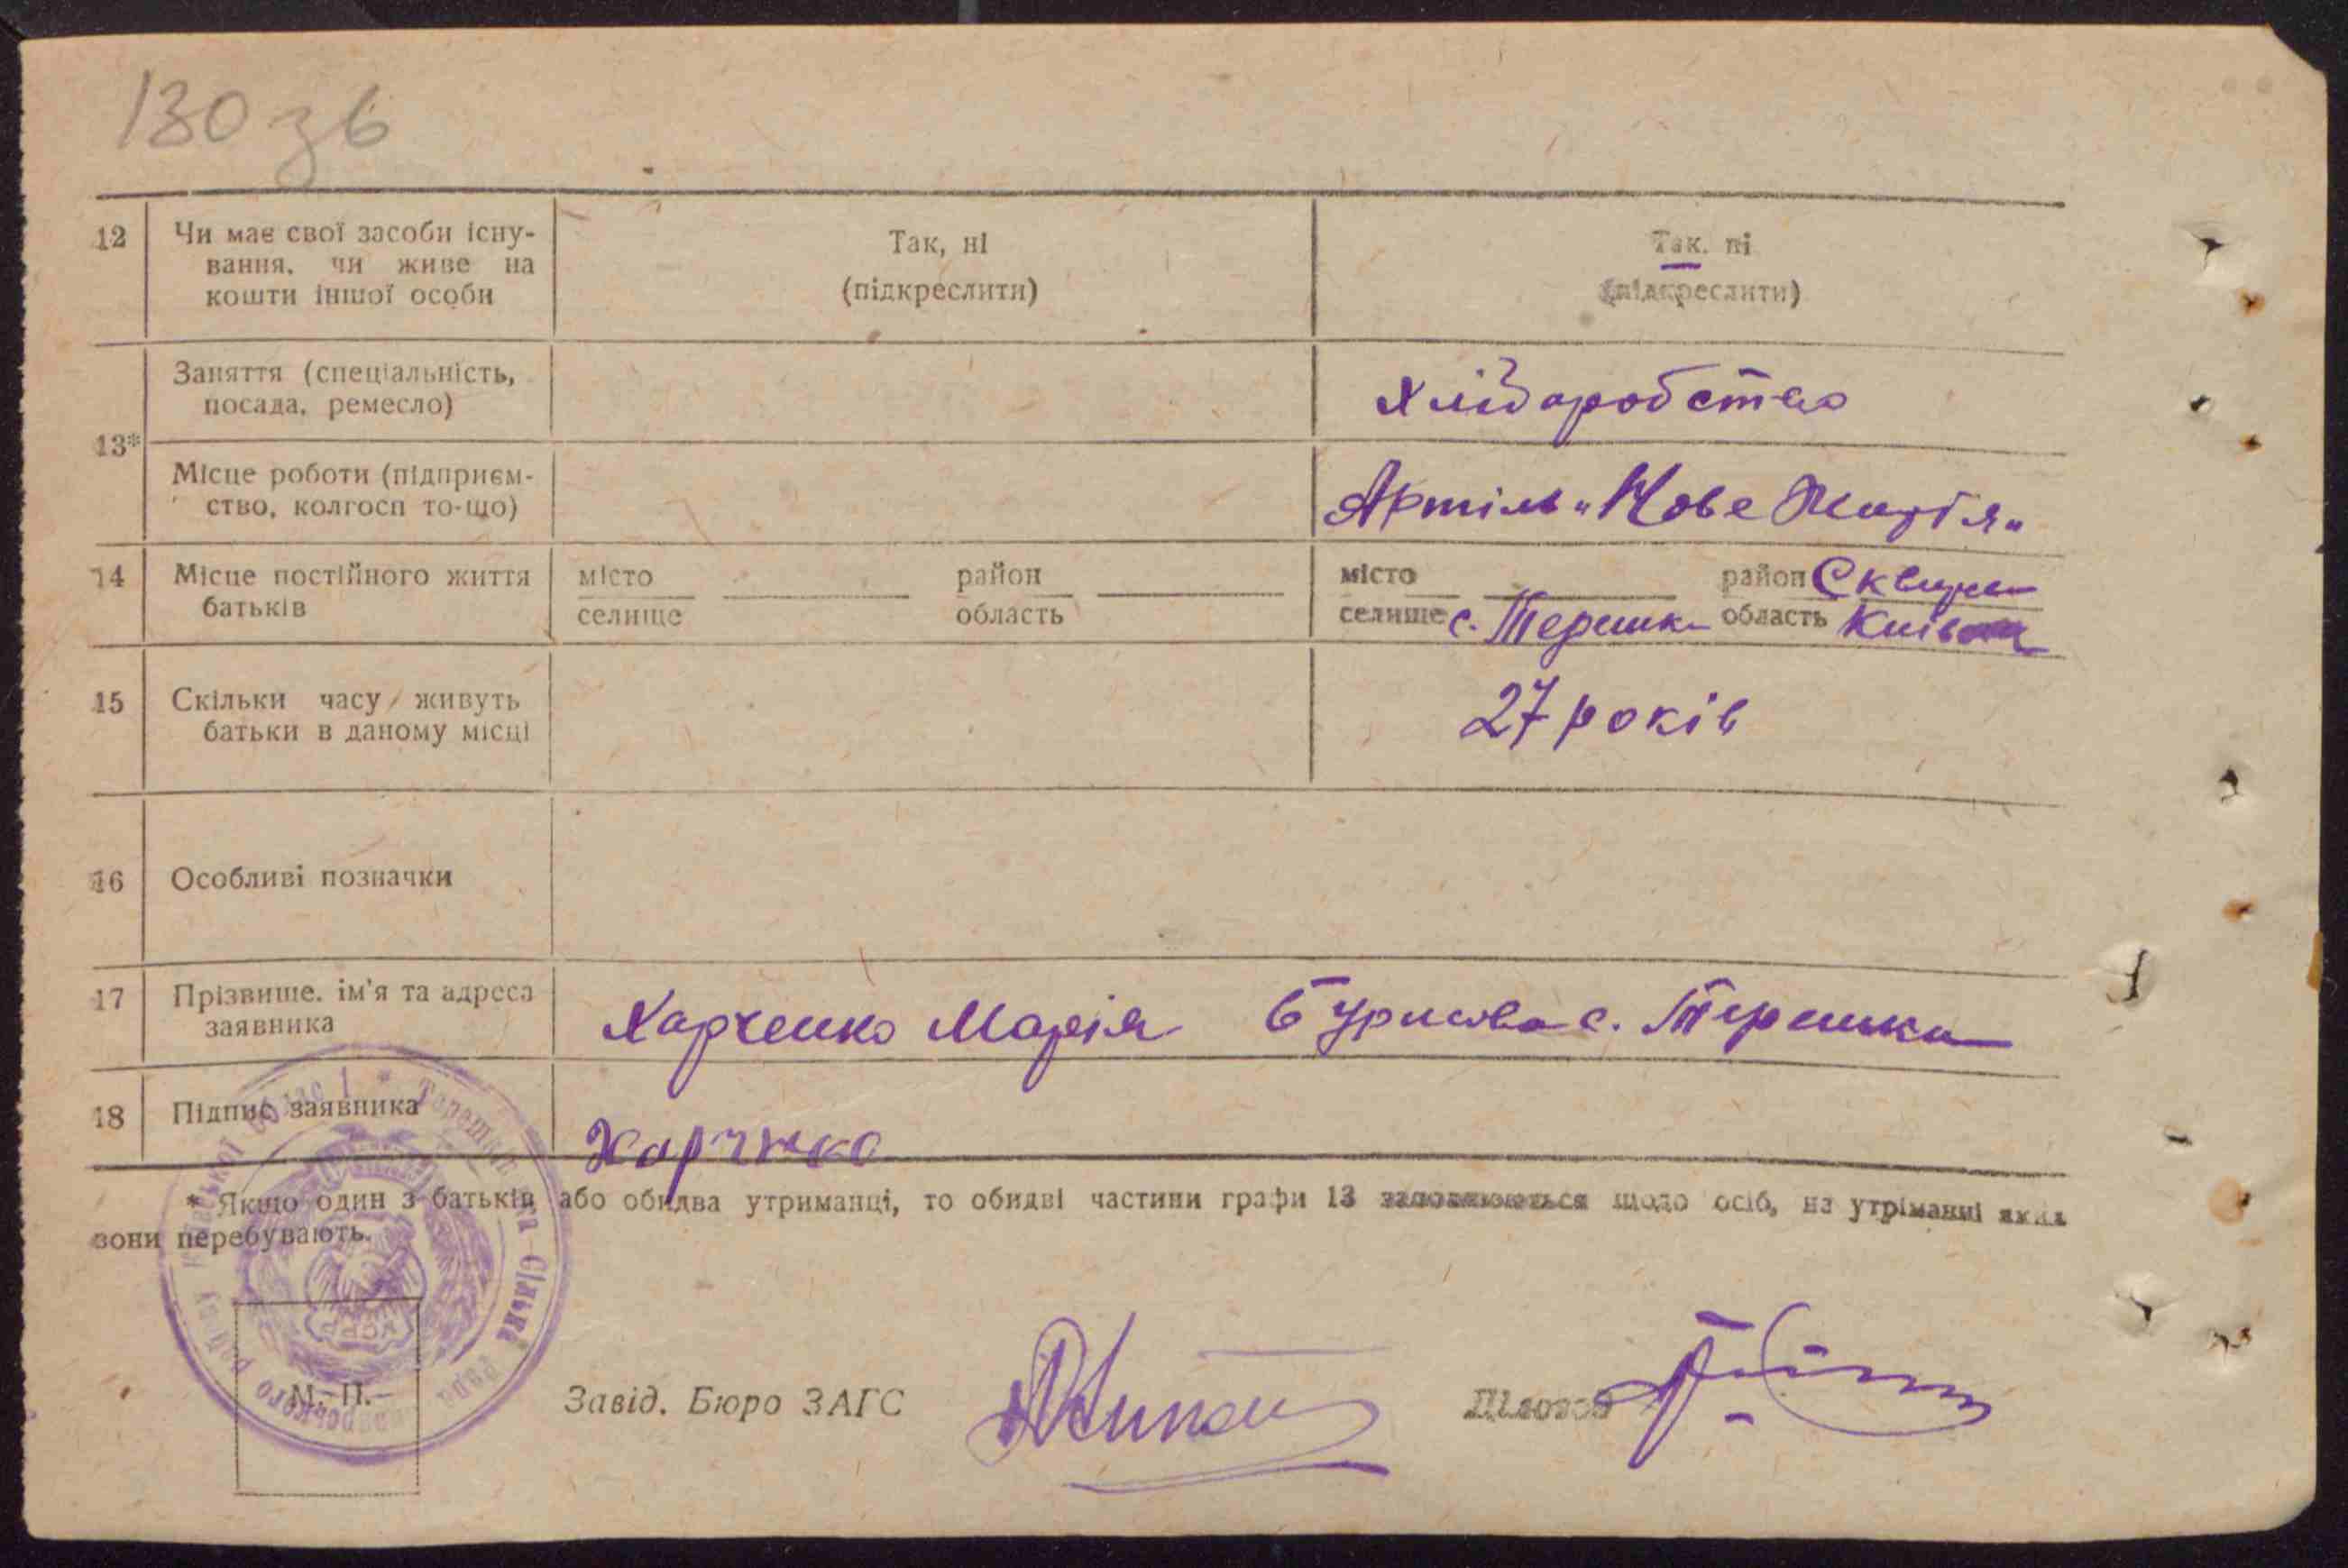 130 зв
12
Чи має свої засоби існу-
вання, чи живе на
кошти іншої особи
Так, ні
(підкреслити)
Так. ні
(підкреслити)
13*
Заняття (спеціальність,
посада, ремесло)
Хліборобство
Місце роботи (підприєм-
ство, колгосп то-що)
Артіль "Нове Життя"
14
Місце постійного життя
батьків
місто
селище
район
область
місто
селище с. Терешк
район Сквирс
область Київ
15
Скільки часу живуть
батьки в даному місці
27 років
16
Особливі позначки
17
Прізвище. ім'я та адреса
заявника
Харченко Марія с. Терешки
18
Підпис заявника
Харчнко
* Якщо один з батьків або обидва утриманці, то обидві частини графи 13 заповнюються щодо осіб, на утріманні яких
вони перебувають.
Сільна Рада
М. П.
Завід. Бюро ЗАГС
Діловод